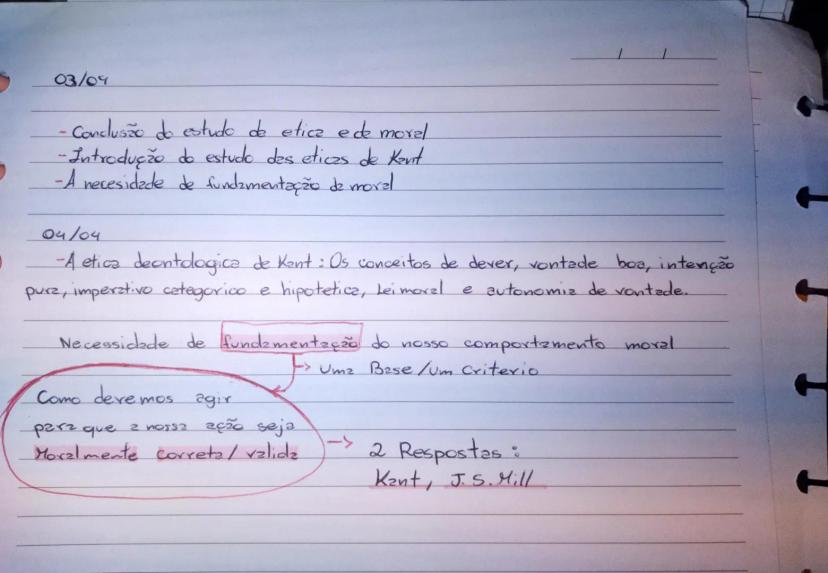 / /
03/04
- Conclusão do estudo de etica e de moral
- Introdução do estudo das eticas de Kant
- A necesidade de fundamentação da moral
04/04
- A etica deontologica de Kant : Os conceitos de dever, vontade boa, intenção
pura, imperativo categorico e hipotetica, Lei moral e autonomia de vontade.
Necessidade de fundamentação do nosso comportamento moral
→ Uma Base/um Criterio
Como devemos agir
para que a nossa ação seja
Moralmente correta/ valida
→ 2 Respostas :
Kant, J.S.Mill